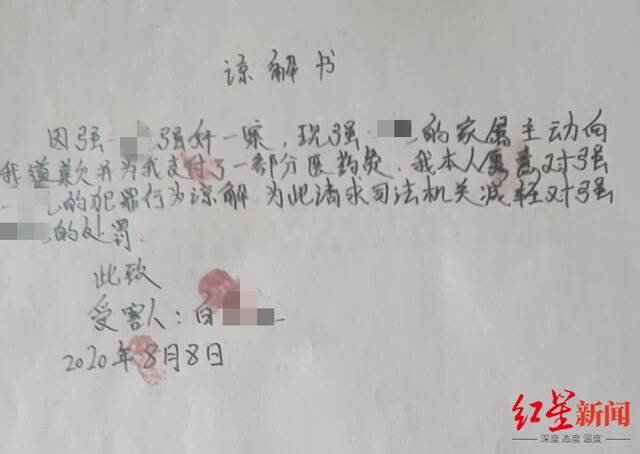 谅解书
因强 强奸一案，现强 的家属主动向
我道歉并为我支付了一部分医药费，我本人愿意对强
的犯罪行为谅解，为此请求司法机关减轻对强
的处罚.
此致
受害人：白
2020年8月8日
红星新闻
深度 态度 温度